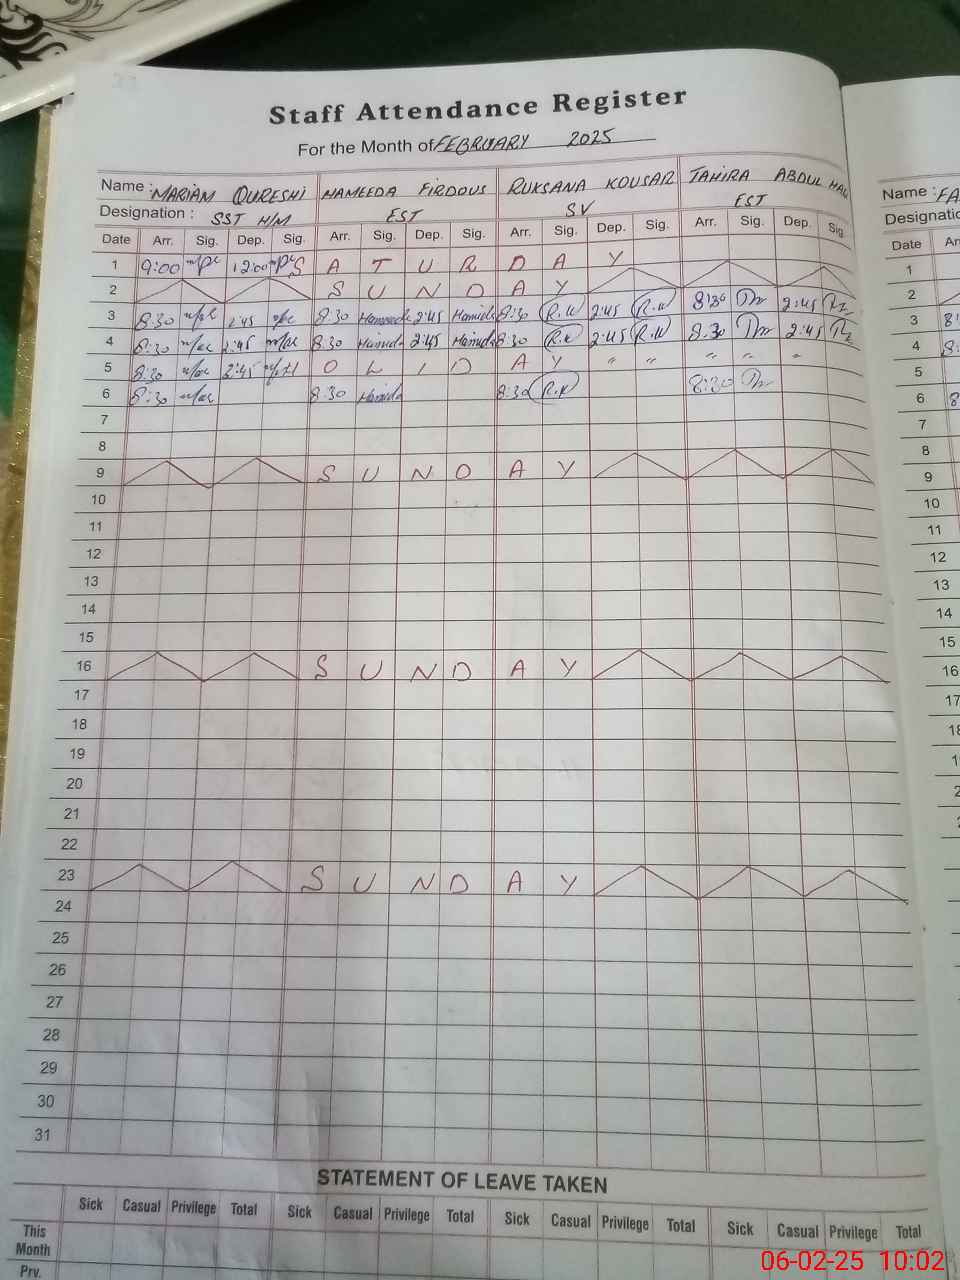 Staff Attendance Register
For the Month of FEBRUARY 2025
Name : MARIAM QURESHI HAMEEDA FIRDOUS RUKSANA KOUSAR TAHIRA ABDUL Name :
Designation : SST H/M EST SV EST
Date Arr. Sig. Dep. Sig. Arr. Sig. Dep. Sig. Arr. Sig. Dep. Sig. Arr. Sig. Dep. Sig. Date
1 9:00 12:00 S A T U R D A Y 1
2 S U N D A Y 2
3 8:30 2:45 8:30 2:45 8:30 R.K 2:45 R.K 8:30 2:45 3
4 8:30 2:45 8:30 Hamida 2:45 Hamida 8:30 R.K 2:45 R.K 8:30 2:45 4
5 8:30 2:45 A Y " " " " " 5
6 8:30 8:30 Hamida 8:30 R.K 8:30 6
7 7
8 8
9 S U N D A Y 9
10 10
11 11
12 12
13 13
14 14
15 15
16 S U N D A Y 16
17 17
18
19
20
21
22
23 S U N D A Y
24
25
26
27
28
29
30
31
STATEMENT OF LEAVE TAKEN
Sick Casual Privilege Total Sick Casual Privilege Total Sick Casual Privilege Total Sick Casual Privilege Total
This
Month
Prv.
06-02-25 10:02